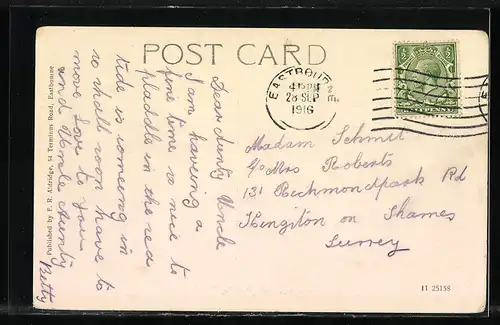 POST CARD
Dear Aunty Uncle
I am haveing a
fine time so nice to
pladdle in the sea
tide is comeing in
so shall soon have to
move Love to you
and Uncle Aunty
Betty
EASTBOU
4 PM
28 SEP
1916
Madam Schmit
C/o Mrs Roberts
131 Richmondpark Rd
Kengston on Thames
Surrey
Published by F. R. Aldridge, 54 Terminus Road, Eastbourne
11 25158